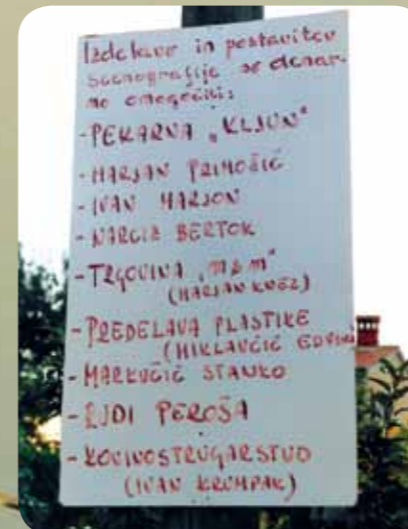 Izdelavo in postavitev
scenografije so denar-
no omogočili:
- PEKARNA „KLJUN"
- MARJAN PRIMOŽIČ
- IVAN MARION
- NARCIZ BERTOK
- TRGOVINA „M&M"
(MARJAN KNEZ)
- PREDELAVA PLASTIKE
(MIKLAVČIČ EDVIN)
- MARKUČIČ STANKO
- RUDI PEROŠA
- KOVINOSTRUGARSTVO
(IVAN KRUMPAK)